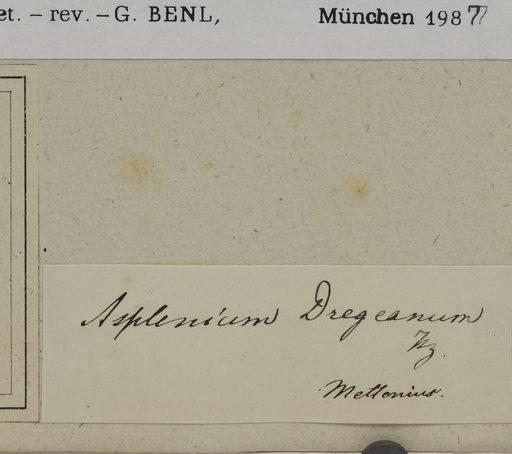 et. – rev. – G. BENL, München 1987
Asplenium Dregeanum
Kz.
Mettenius.